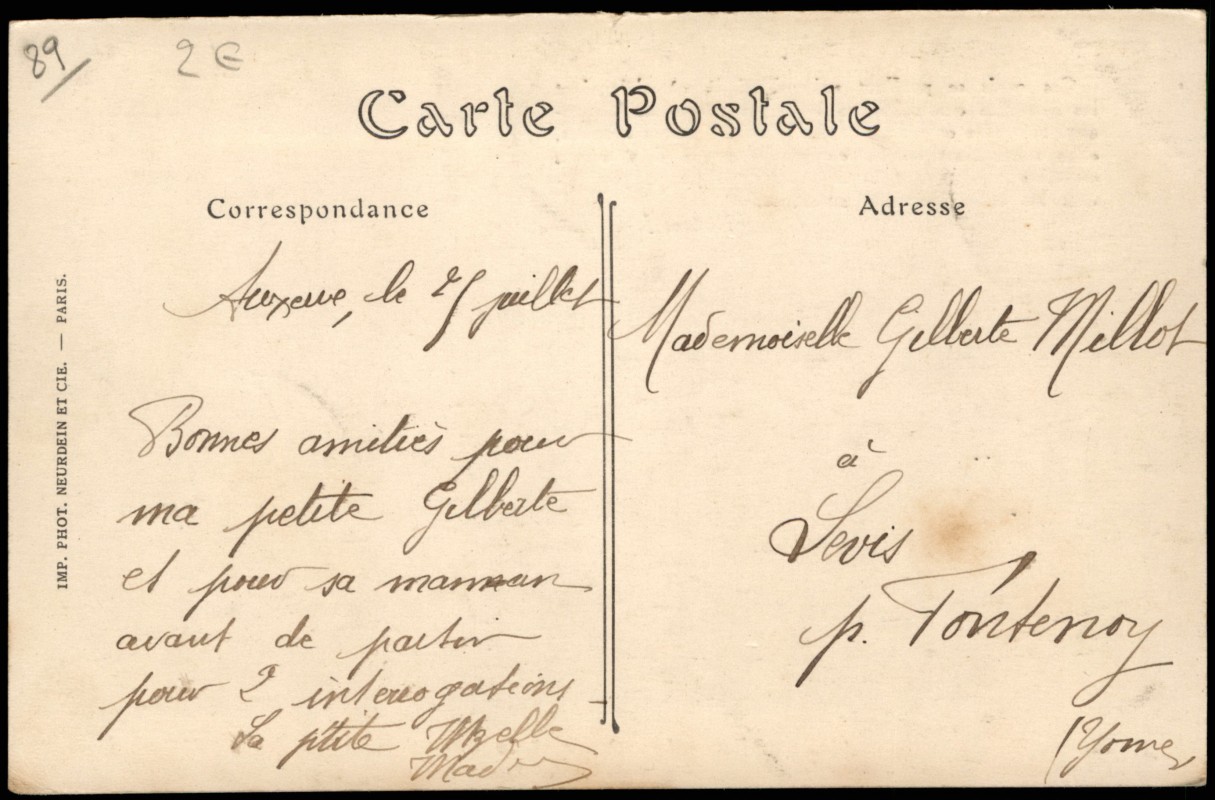 89
2 €
Carte Postale
Correspondance
Adresse
IMP. PHOT. NEURDEIN ET CIE. — PARIS.
Auxerre, le 25 juillet
Bonnes amitiés pour
ma petite Gilberte
et pour sa maman
avant de partir
pour 2 interrogations
La p'tite Mzelle
Mademoiselle Gilberte Millot
à
Levis
p. Fontenoy
(Yonne)